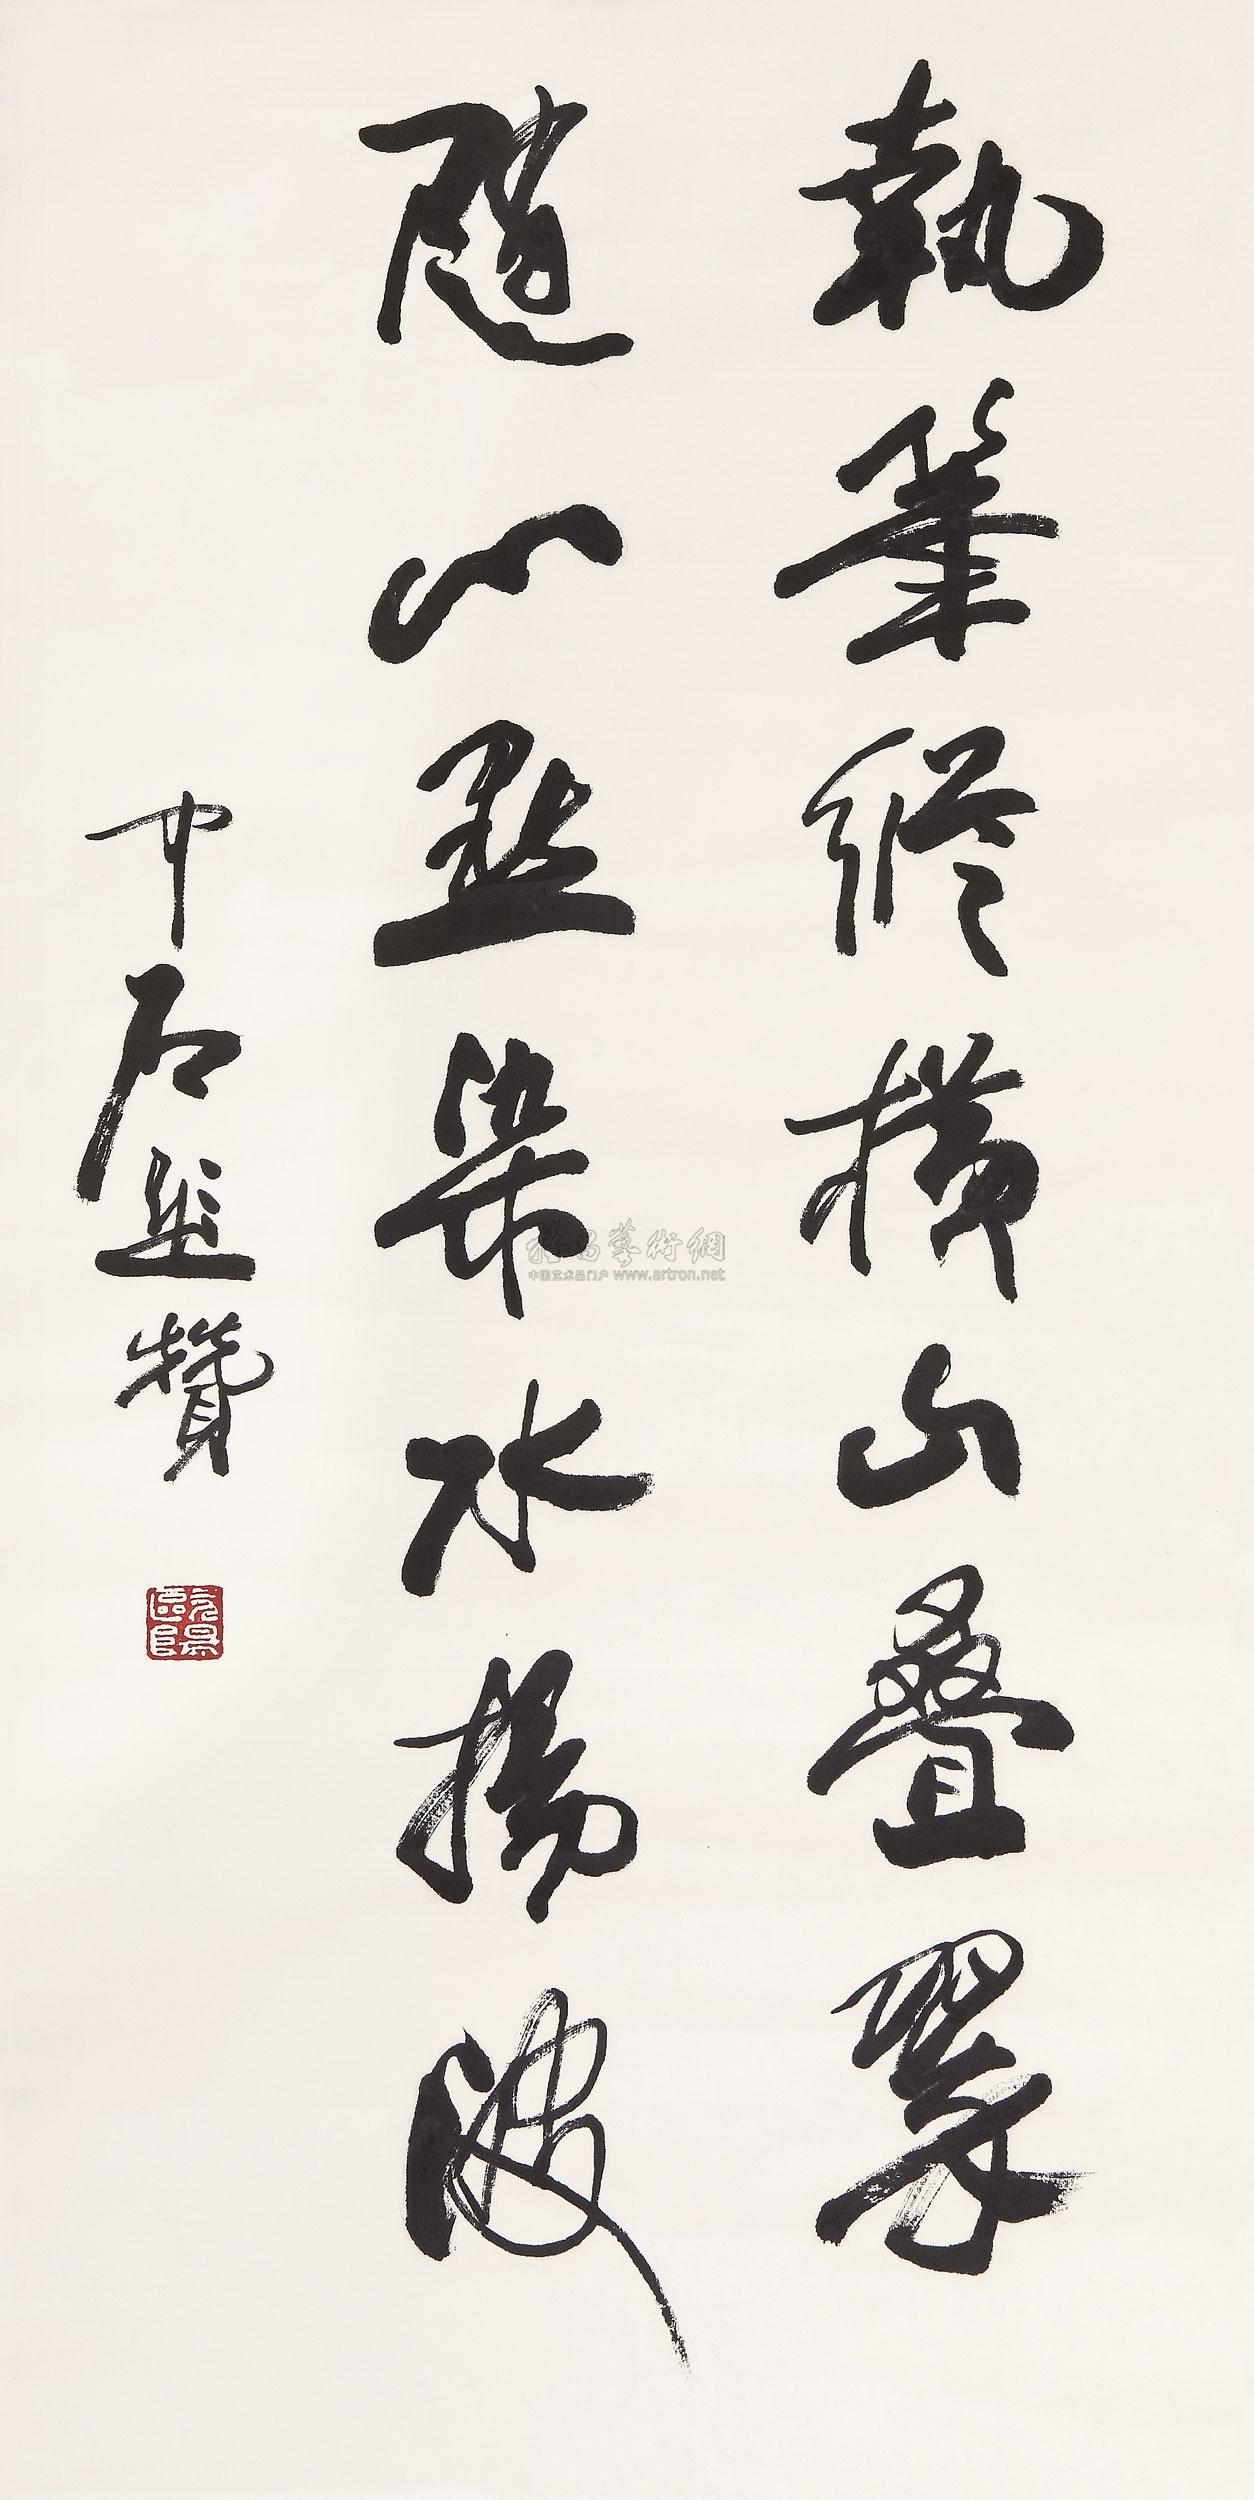 執筆縱橫山叠翠
隨心點染水揚波
中石並贊
歐陽
雅昌藝術網
中国艺术品门户 www.artron.net